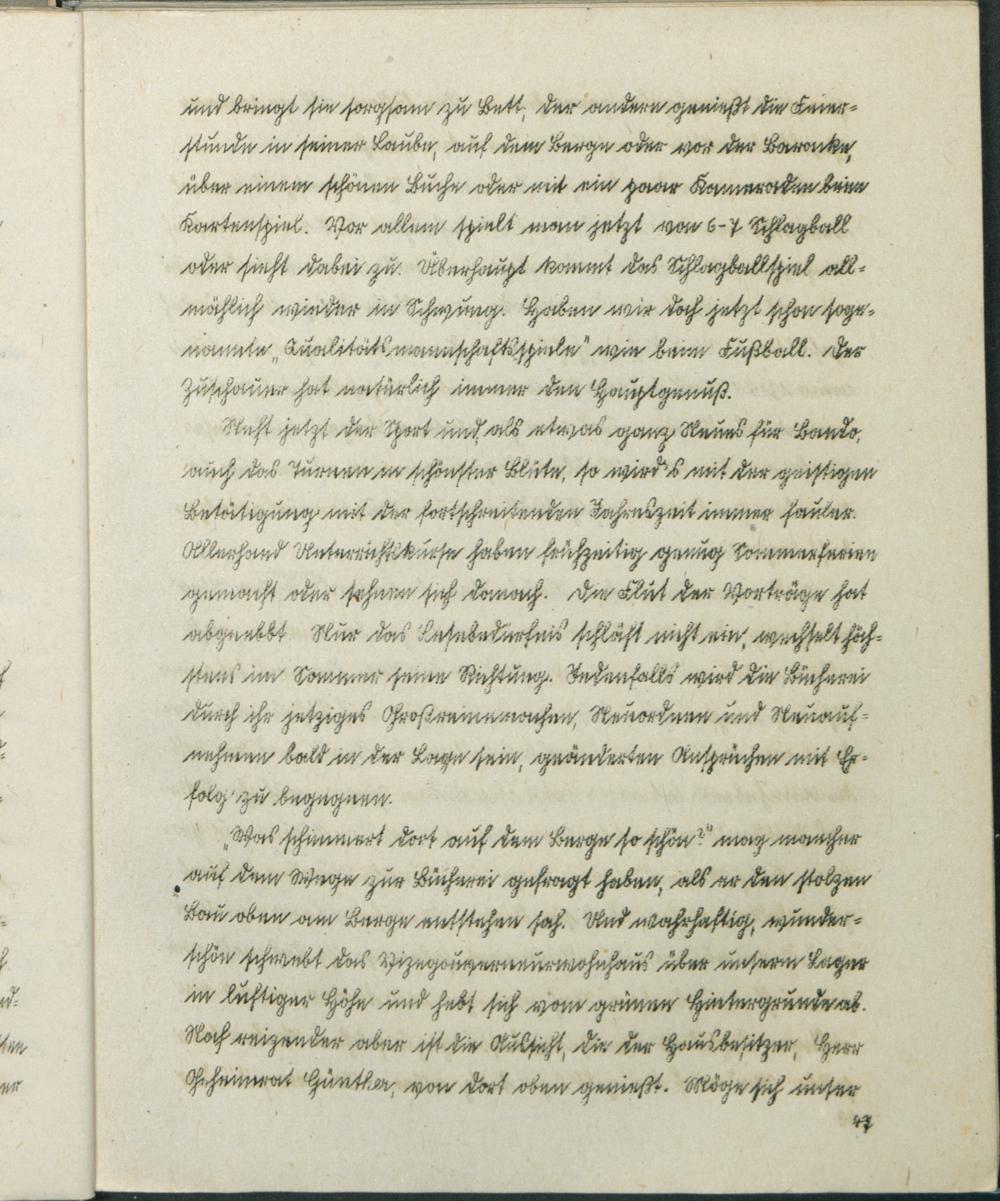 und bringt sie sorgsam zu Bett, der andere genießt die Feier-
stunde in seiner Laube, auf dem Berge oder vor der Baracke,
über einem schönen Buche oder mit ein paar Kameraden beim
Kartenspiel. Vor allem spielt man jetzt von 6-7 Schlagball
oder sieht dabei zu. Überhaupt kommt das Schlagballspiel all-
mählich wieder in Schwung. Haben wir doch jetzt schon soge-
nannte „Qualitätsmannschaftsspiele" wie beim Fußball. Der
Zuschauer hat natürlich immer den Hauptgenuß.
Steht jetzt der Sport und, als etwas ganz Neues für Bando,
auch das Turnen in schönster Blüte, so wird's mit der geistigen
Betätigung mit der fortschreitenden Jahreszeit immer fauler.
Allerhand Unterrichtskurse haben frühzeitig genug Sommerferien
gemacht oder sehnen sich danach. Die Flut der Vorträge hat
abgeebbt. Nur das Lesebedürfnis schläft nicht ein, wechselt höch-
stens im Sommer seine Richtung. Jedenfalls wird die Bücherei
durch ihr jetziges Großreinemachen, Neuordnen und Neuauf-
nehmen bald in der Lage sein, geänderten Ansprüchen mit Er-
folg zu begegnen.
„Was schimmert dort auf dem Berge so schön?" mag mancher
auf dem Wege zur Bücherei gefragt haben, als er den stolzen
Bau oben am Berge entstehen sah. Und wahrhaftig, wunder-
schön schwebt das Vizegouverneurwohnhaus über unserm Lager
in luftiger Höhe und hebt sich vom grünen Hintergrunde ab.
Noch reizender aber ist die Aussicht, die der Hausbesitzer, Herr
Geheimrat Günther, von dort oben genießt. Möge sich unser
47